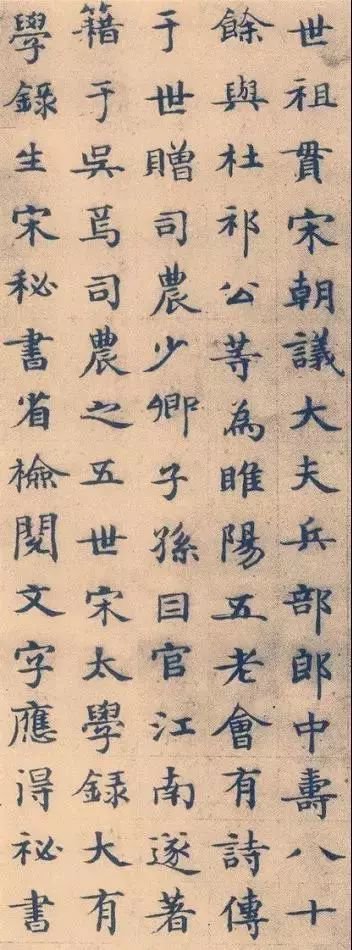 世祖貫宋朝議大夫兵部郎中壽八十
餘與杜祁公等為睢陽五老會有詩傳
于世贈司農少卿子孫囙官江南遂著
籍于吳焉司農之五世宋太學録大有
學録生宋秘書省檢閱文字應得祕書